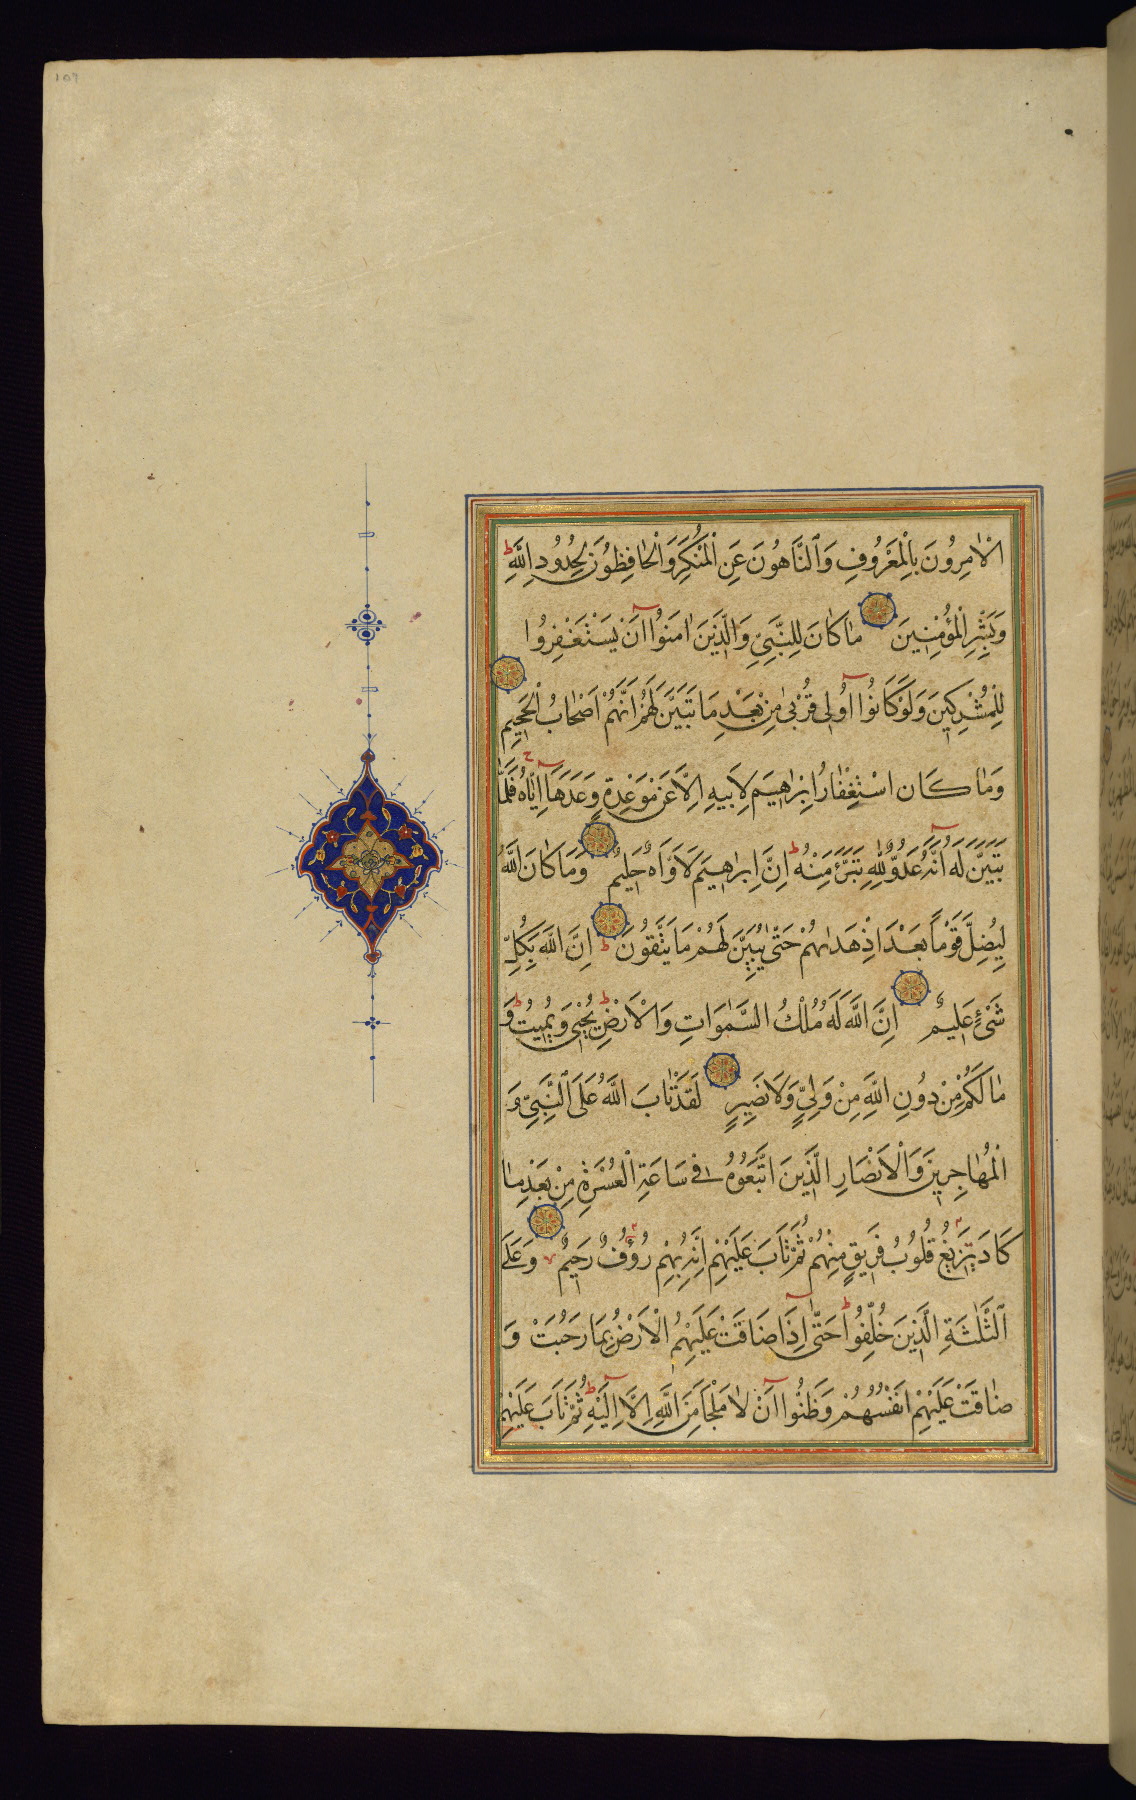 الْاٰمِرُونَ بِالْمَعْرُوفِ وَالنَّاهُونَ عَنِ الْمُنْكَرِ وَالْحَافِظُونَ لِحُدُودِ اللَّهِ ط
وَبَشِّرِ الْمُؤْمِنِينَ مَا كَانَ لِلنَّبِيِّ وَالَّذِينَ اٰمَنُوا اَنْ يَسْتَغْفِرُوا
لِلْمُشْرِكِينَ وَلَوْ كَانُوا اُولِى قُرْبٰى مِنْ بَعْدِ مَا تَبَيَّنَ لَهُمْ اَنَّهُمْ اَصْحَابُ الْجَحِيمِ
وَمَا كَانَ اسْتِغْفَارُ اِبْرٰهِيمَ لِاَبِيهِ اِلَّا عَنْ مَوْعِدَةٍ وَعَدَهَا اِيَّاهُ ج فَلَمَّا
تَبَيَّنَ لَهُ اَنَّهُ عَدُوٌّ لِلَّهِ تَبَرَّءَ مِنْهُ ط اِنَّ اِبْرٰهِيمَ لَاَوَّاهٌ حَلِيمٌ وَمَا كَانَ اللَّهُ
لِيُضِلَّ قَوْمًا بَعْدَ اِذْ هَدٰيهُمْ حَتّٰى يُبَيِّنَ لَهُمْ مَا يَتَّقُونَ ط اِنَّ اللَّهَ بِكُلِّ
شَىْءٍ عَلِيمٌ اِنَّ اللَّهَ لَهُ مُلْكُ السَّمٰوَاتِ وَالْاَرْضِ ط يُحْيِى وَيُمِيتُ ط وَ
مَا لَكُمْ مِنْ دُونِ اللَّهِ مِنْ وَلِيٍّ وَلَا نَصِيرٍ لَقَدْ تَابَ اللَّهُ عَلَى النَّبِيِّ وَ
الْمُهَاجِرِينَ وَالْاَنْصَارِ الَّذِينَ اتَّبَعُوهُ فِى سَاعَةِ الْعُسْرَةِ مِنْ بَعْدِ مَا
كَادَ يَزِيغُ قُلُوبُ فَرِيقٍ مِنْهُمْ ثُمَّ تَابَ عَلَيْهِمْ اِنَّهُ بِهِمْ رَؤُفٌ رَحِيمٌ وَعَلَى
الثَّلٰثَةِ الَّذِينَ خُلِّفُوا ط حَتّٰى اِذَا ضَاقَتْ عَلَيْهِمُ الْاَرْضُ بِمَا رَحُبَتْ وَ
ضَاقَتْ عَلَيْهِمْ اَنْفُسُهُمْ وَظَنُّوا اَنْ لَا مَلْجَاَ مِنَ اللَّهِ اِلَّا اِلَيْهِ ط ثُمَّ تَابَ عَلَيْهِمْ